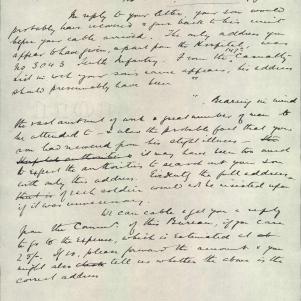 In reply to your letter, your son would
probably have returned back to his unit
before your cable arrived. The only address you
appear to have given, apart from the Hospital, was
No 3043 Infantry. From the Casualty
list in which your son's name appears, his address
should presumably have been " "
Bearing in mind
the vast amount of work a great number of men to
be attended to also the probable fact that your
son had recovered from his slight illness
it may have been too much
to expect the authorities to search out your son
with only this address. Evidently the full address
of each soldier would not be insisted upon
if it was unnecessary.
We can cable & get you a reply
from the Commr. of this Bureau, if you care
to go to the expense, which is estimated at abt
25/-. If so, please forward the amount & you
might also tell us whether the above is the
correct address